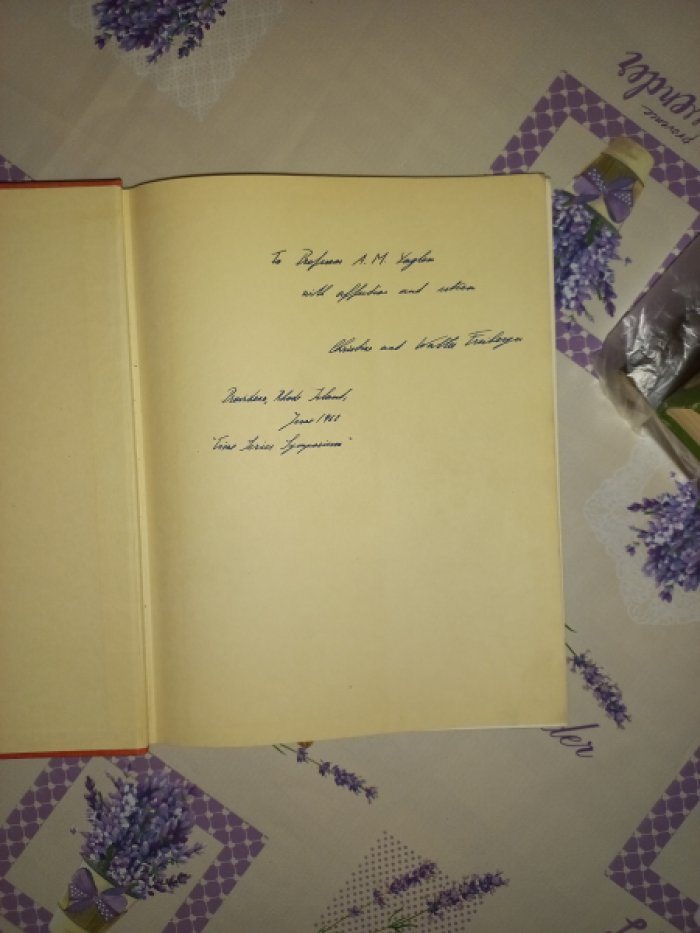 To Professor A. M. Yaglom
with affection and esteem
Christine and Walter Freiberger
Providence, Rhode Island,
June 1960
"Time Series Symposium"
Lavender
provence